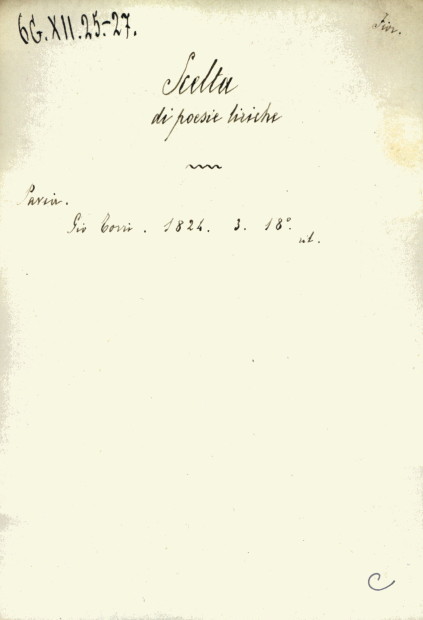 6G.XII.25-27.
Fior.
Scelta
di poesie liriche
Pavia.
Gio Torri. 1824. 3. 18°.
C